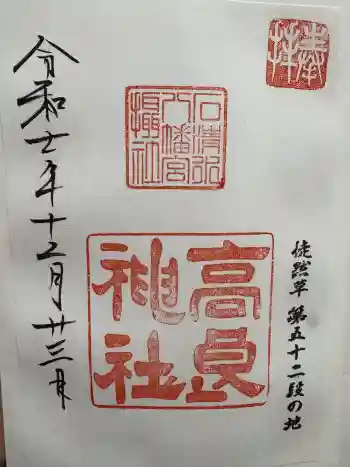 奉拝
徒然草 第五十二段の地
石清水
八幡宮
攝社
高良
神社
令和七年十二月廿三日